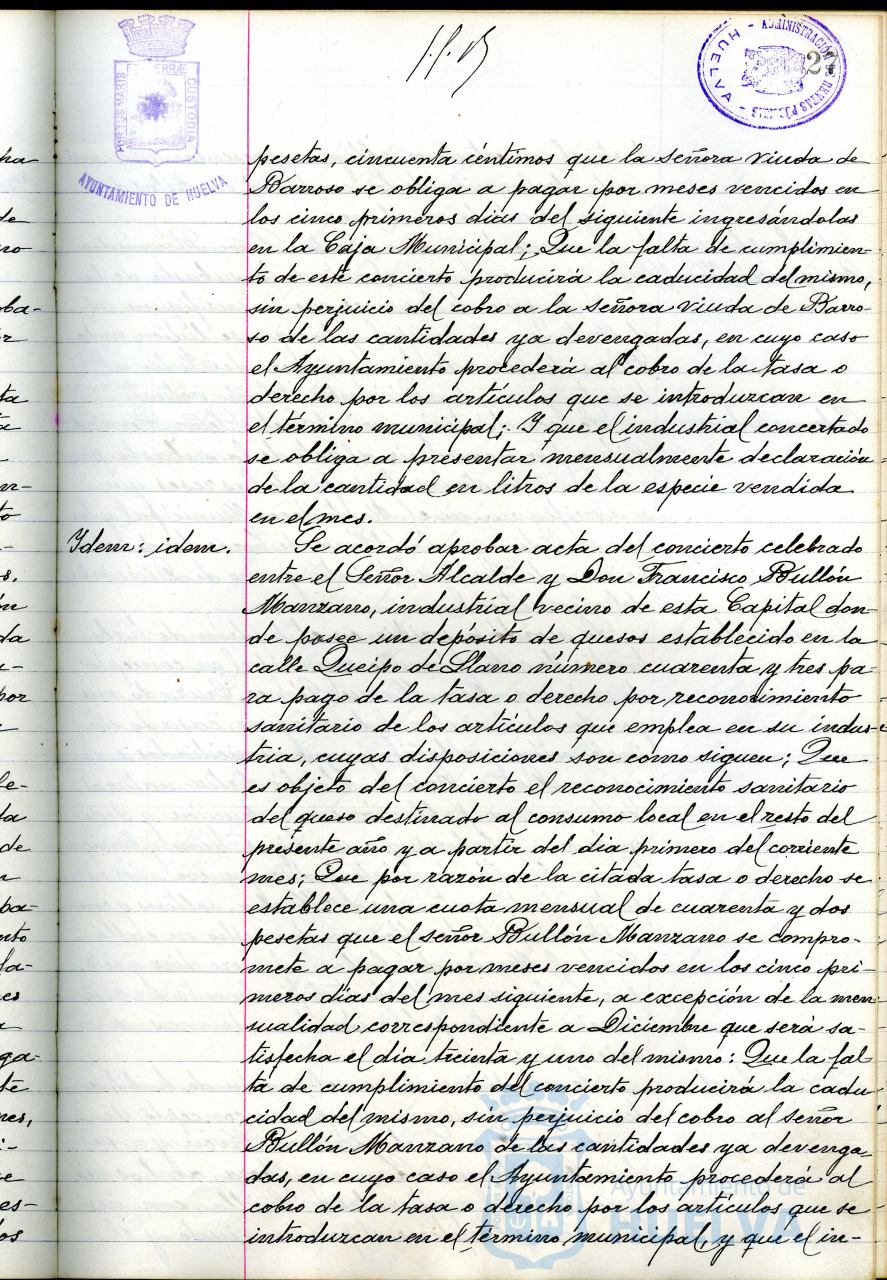 27
ADMINISTRACIÓN DE RENTAS PÚBLICAS - HUELVA -
PORTUS MARIS ET TERRÆ CUSTODIA
AYUNTAMIENTO DE HUELVA
pesetas, cincuenta céntimos que la señora viuda de
Barroso se obliga a pagar por meses vencidos en
los cinco primeros dias del siguiente ingresándolas
en la Caja Municipal; Que la falta de cumplimien-
to de este concierto producirá la caducidad del mismo,
sin perjuicio del cobro a la señora viuda de Barro-
so de las cantidades ya devengadas, en cuyo caso
el Ayuntamiento procederá al cobro de la tasa o
derecho por los artículos que se introduzcan en
el término municipal; Y que el industrial concertado
se obliga a presentar mensualmente declaración
de la cantidad en litros de la especie vendida
en el mes.
Ydem: idem. Se acordó aprobar acta del concierto celebrado
entre el Señor Alcalde y Don Francisco Bullón
Manzano, industrial vecino de esta Capital don-
de posee un depósito de quesos establecido en la
calle Queipo de Llano número cuarenta y tres pa-
ra pago de la tasa o derecho por reconocimiento
sanitario de los artículos que emplea en su indus-
tria, cuyas disposiciones son como siguen; Que
es objeto del concierto el reconocimiento sanitario
del queso destinado al consumo local en el resto del
presente año y a partir del dia primero del corriente
mes; Que por razón de la citada tasa o derecho se
establece una cuota mensual de cuarenta y dos
pesetas que el señor Bullón Manzano se compro-
mete a pagar por meses vencidos en los cinco pri-
meros días del mes siguiente, a excepción de la men-
sualidad correspondiente a Diciembre que será sa-
tisfecha el día treinta y uno del mismo: Que la fal
ta de cumplimiento del concierto producirá la cadu-
cidad del mismo, sin perjuicio del cobro al señor
Bullón Manzano de las cantidades ya devenga-
das, en cuyo caso el Ayuntamiento procederá al
cobro de la tasa o derecho por los artículos que se
introduzcan en el término municipal, y que el in-
Ayuntamiento de
HUELVA